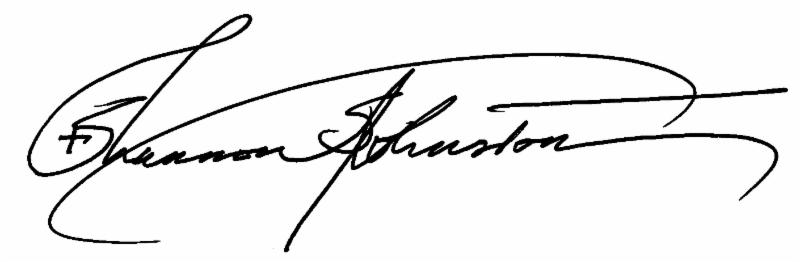 +Shannon S Johnston